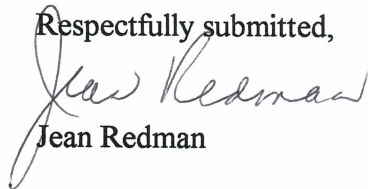 Respectfully submitted,
Jean Redman
Jean Redman